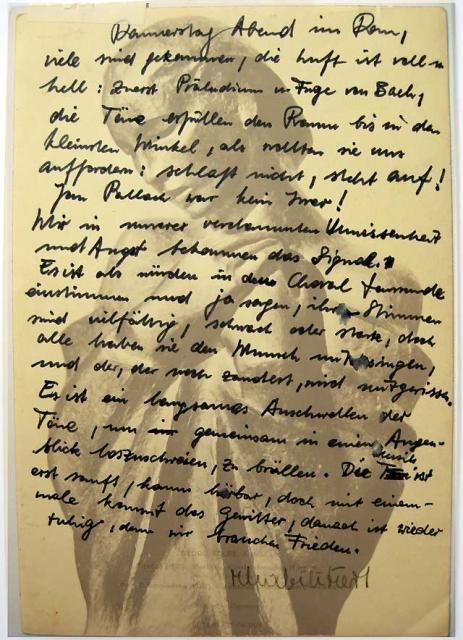 Donnerstag Abend im Dom,
viele sind gekommen, die Luft ist voll u
hell: Zuerst Präludium u Fuge von Bach,
die Töne erfüllen den Raum bis in den
kleinsten Winkel, als wollten sie uns
auffordern: schlaft nicht, steht auf!
Jan Pallach war kein Irrer!
Wir in unserer verdammten Unwissenheit
und Angst bekommen das Signal.
Es ist als würden in den Choral Tausende
einstimmen und ja sagen, ihre Stimmen
sind vielfältig, schwach oder stark, doch
alle haben sie den Wunsch mitzusingen,
und der, der noch zandert, wird mitgerissen.
Es ist ein langsames Anschwellen der
Töne, um gemeinsam in einem Augen-
blick loszuschreien, zu brüllen. Die Musik ist
erst sanft, kaum hörbar, doch mit einem-
male kommt das Gewitter, danach ist wieder
ruhig, denn wir brauchen Frieden.